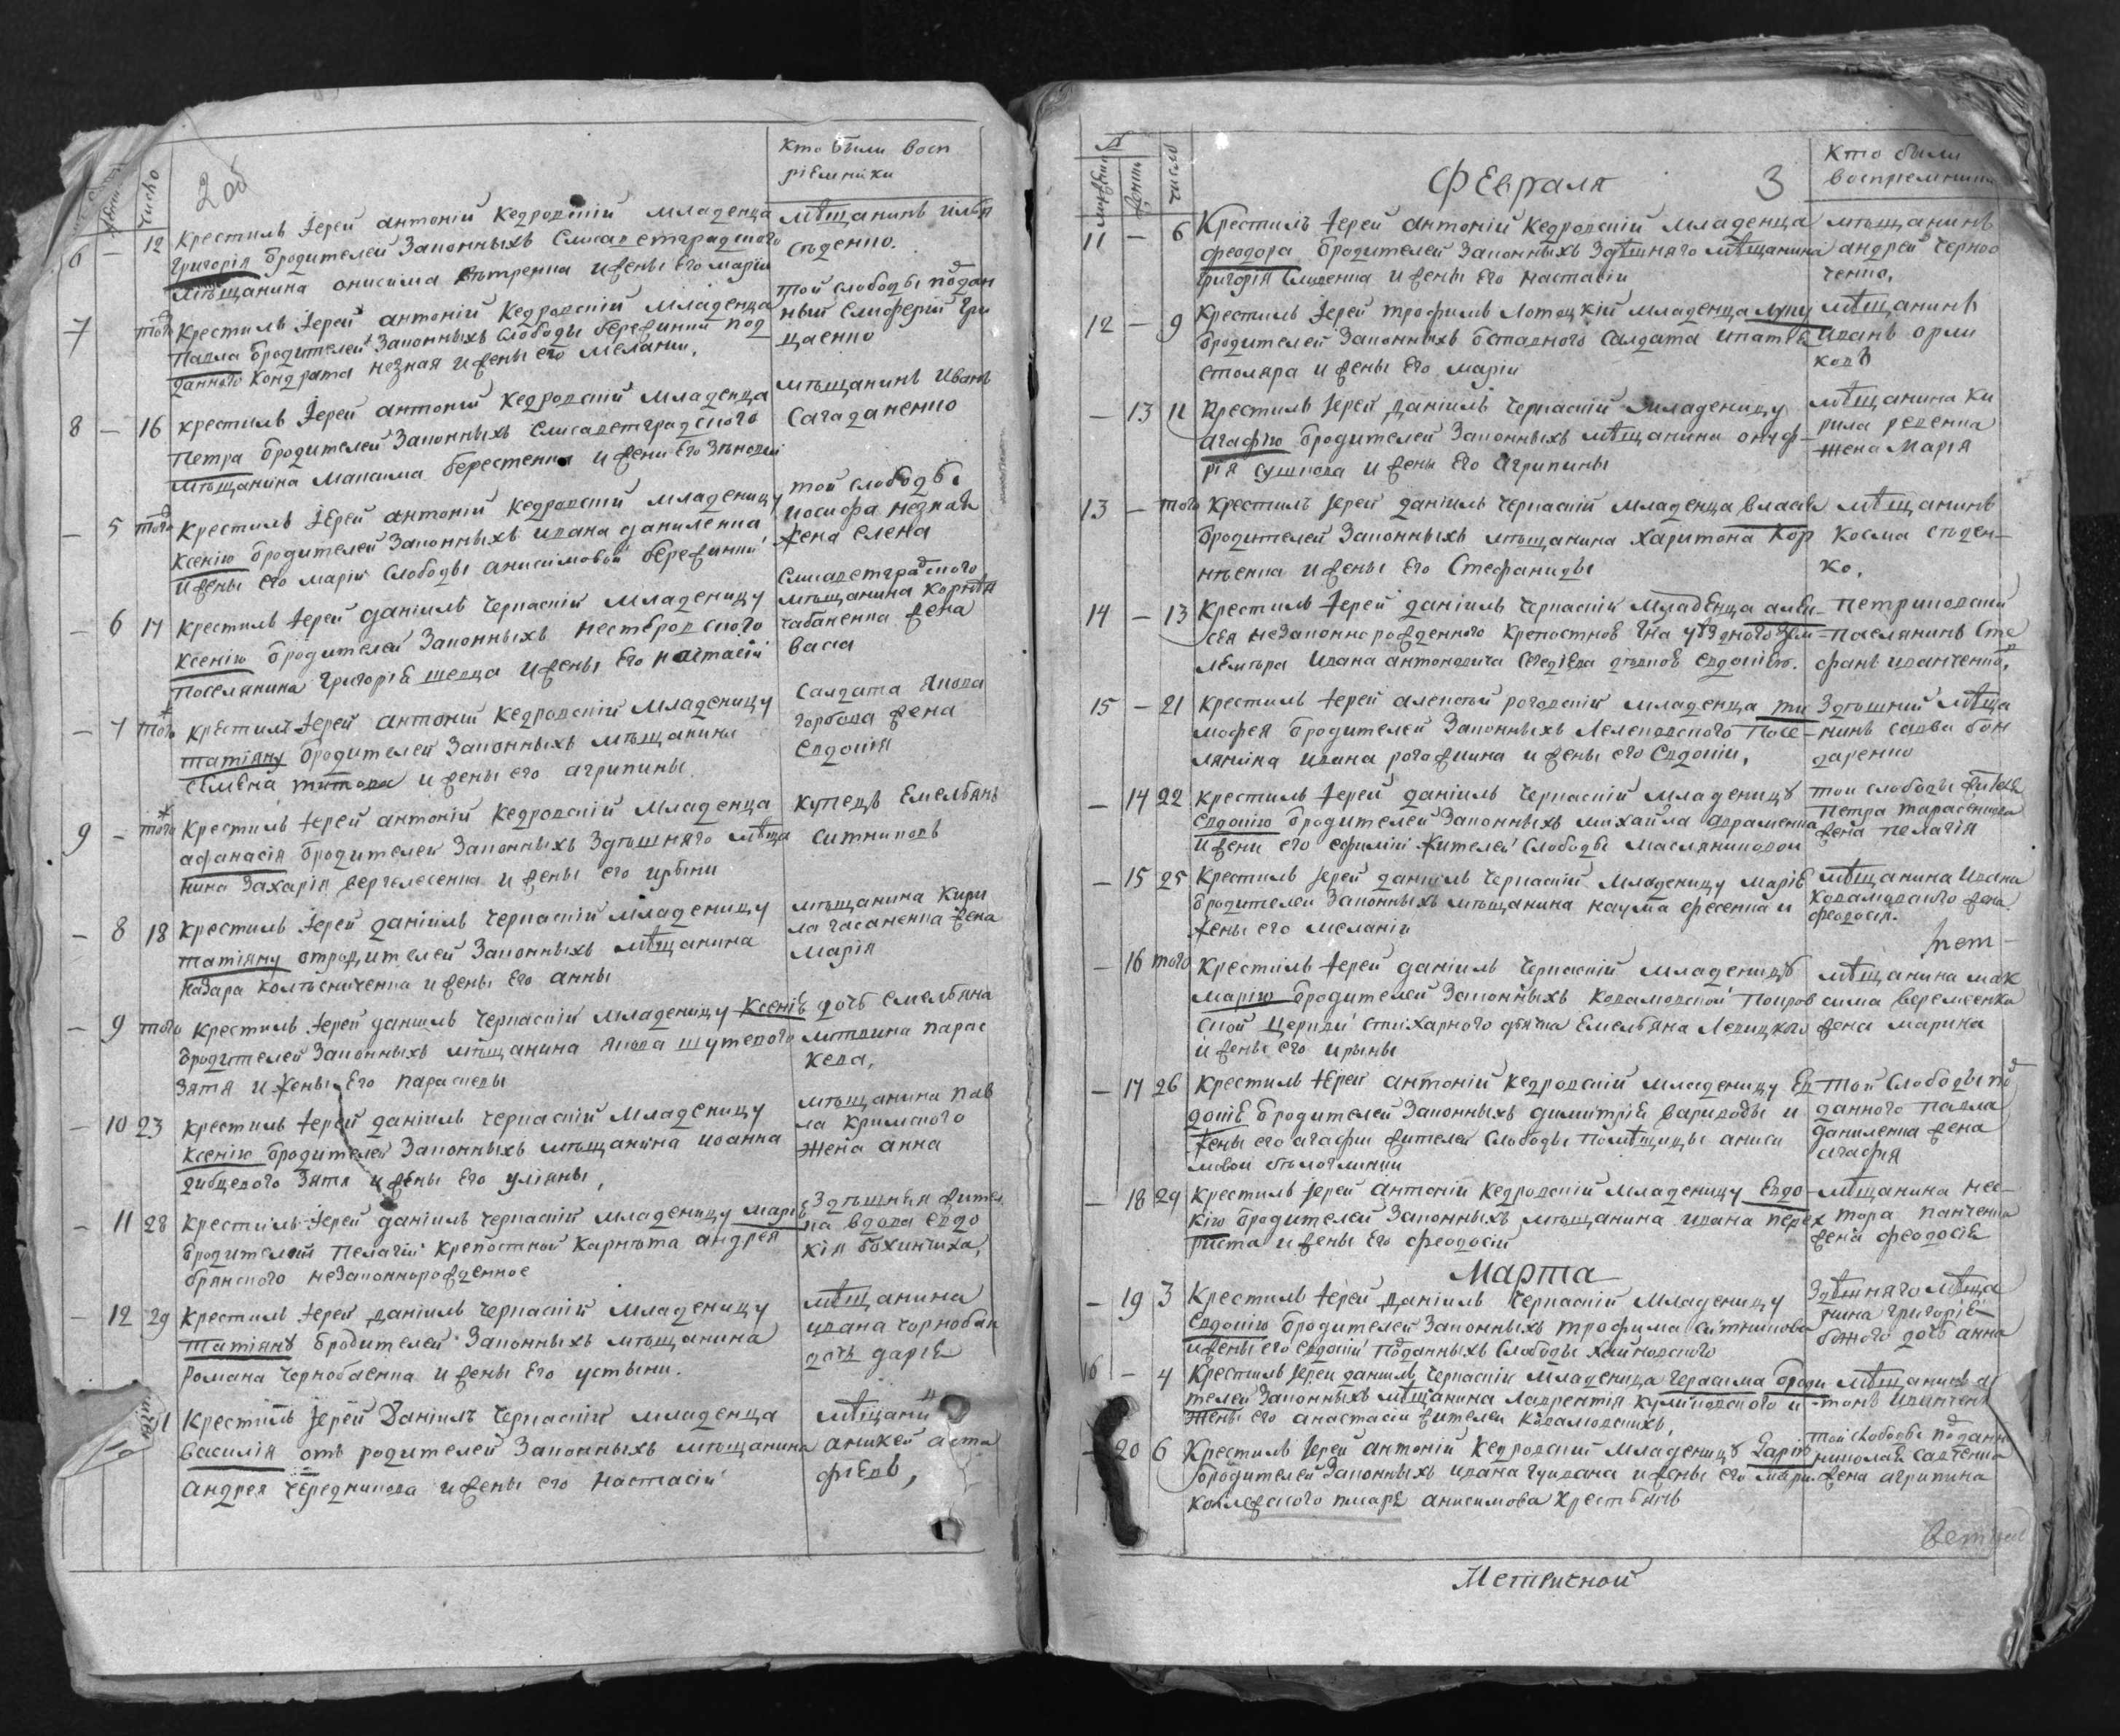 2 об
число
Кто были восп
ріемники
12 Крестилъ Іерей антоній Кедровскій младенца
6 — Григорія ѿродителей Законныхъ Елисаветградского
мѣщанина онисима вѣтренка и жены Его маріи
мѣщанинъ илья
сѣденко.
7 того Крестилъ Іерей антоній Кедровскій младенца
Павла ѿродителей Законныхъ Слободы бережинки под
данного Кондрата незная и жены его меланіи,
той слободы поддан
ный Елиферій Гри
щенко
8 — 16 крестилъ Іерей антоній Кедровскій младенца
Петра ѿродителей Законныхъ Елисаветградского
мѣщанина Максима берестенка и жени Его Зѣновіи
мѣщанинъ Иванъ
Сагадаченко
— 5 того Крестилъ Іерей антоній Кедровскій младеницу
Ксенію ѿродителей Законныхъ ивана даниленка
и жены его маріи Слободы анисимовой бережинки
той слободы
иосифа незная
жена елена
— 6 17 Крестилъ Іерей даніилъ Черкаскій младеницу
Ксенію ѿродителей Законныхъ
поселянина Григоріѣ шевца и жены Его настасіи
Елисаветградского
мѣщанина Корнѣя
чабаненка жена
васса
— 7 того крѣстилъ Іерей антоній Кедровскій младеницу
татіяну ѿродителей Законныхъ мѣщанина
семена титова и жены его агрипины.
Салдата Якова
горбова жена
Евдокія
9 — того Крестилъ Іерей антоній Кедровскій младенца
афанасія ѿродителей Законныхъ Здѣшняго мѣща
нина Захарія вергелесенка и жены его ирыны
купецъ Емельянъ
ситниковъ
— 8 18 Крестилъ Іерей даніилъ Черкаскій младеницу
татіяну отродителей Законныхъ мѣщанина
Назара колѣсниченка и жены Его анны
мѣщанина Кири
ла чабаненка жена
марія
— 9 того Крестилъ Іерей даніилъ Черкаскій младеницу Ксенію
ѿродителей Законныхъ мѣщанина Якова шутевого
Зятя и жены Его параскевы
дочь емельяна
литвина парас
кева,
— 10 23 Крестилъ Іерей даніилъ Черкаскій младеницу
Ксенію ѿродителей Законныхъ мѣщанина иоанна
дибцевого Зятя и жены Его уліяны,
мѣщанина Пав
ла Кримского
жена анна
— 11 28 Крестилъ Іерей даніилъ Черкаскій младеницу марію
ѿродителей Пелагіи крепостной Карнѣта андрея
брянского незаконнорожденное
Здѣшняя жител
ка вдова евдо
кія бохинчиха,
— 12 29 Крестилъ Іерей даніилъ Черкаскій младеницу
татіянѣ ѿродителей Законныхъ мѣщанина
романа чернобаенка и жены Его устыни.
мѣщанина
ивана чорнобая
дочь даріѣ
10 31 Крестилъ Іерей даніилъ Черкаскій младенца
василія отъ родителей Законныхъ мѣщанина
андрея чередникова и жены его настасіи
мѣщанинъ
аникей аста
фіевъ,
число
ФЕвраля 3
Кто были
воспріемники
11 — 6 Крестилъ Іерей антоній Кедровскій младенца
феодора ѿродителей Законныхъ Здѣшняго мѣщанина
Григорія Слюсенка и жены Его настасіи
мѣщанинъ
андрей черно
ченко,
12 — 9 Крестилъ Іерей трофимъ Лотоцкій младенца луку
ѿродителей Законныхъ ѿставного Салдата ипатіѣ
столяра и жены Его маріи
мѣщанинъ
Иванъ орли
ковъ
— 13 11 Крестилъ Іерей даніилъ Черкаскій младеницу
агафію ѿродителей Законныхъ мѣщанина онуф-
рія сушкова и жены Его агрипины
мѣщанина Ки
рила реденка
жена Марія
13 — того Крестилъ Іерей даніилъ Черкаскій младенца власія
ѿродителей Законныхъ мѣщанина Харитона Кор
нѣенка и жены Его Стефаниды
мѣщанинъ
Косма сѣден-
ко,
14 — 13 Крестилъ Іерей даніилъ Черкаскій младенца алек-
сея незаконнорожденного Крепостноѣ Гна уѣздного Зем-
лемѣра ивана антоновича дѣвкоѣ евдокіею.
петриковскій
поселянинъ Сте
фанъ иванченко,
15 — 21 Крестилъ Іерей алексѣй роговскій младенца ти
мофея ѿродителей Законныхъ Лелековского Посе-
лянина ивана рогожкина и жены его Евдокіи,
Здѣшній мѣща
нинъ савва бон
даренко
— 14 22 Крестилъ Іерей даніилъ Черкаскій младеницѣ
евдокію ѿродителей Законныхъ михайла авраменка
и жени его ефиміи жителей Слободы масляниковой
той слободы жителя
Петра тарасенкова
жена пелагія
— 15 25 Крестилъ Іерей даніилъ Черкаскій младеницу маріѣ
ѿродителей Законныхъ мѣщанина наума фесенка и
жены его меланіи
мѣщанина ивана
Коваловского жена
феодосія.
— 16 того Крестилъ Іерей даніилъ Черкаскій младеницѣ
марію ѿродителей Законныхъ Ковалювской Покров
ской Церкви стихарного дьячка Емельяна Левицкого
и жены его ирыны
мѣщанина мак
сима веремеенка
жена марина
— 17 26 Крестилъ Іерей антоній Кедровскій младеницу Ев
докіѣ ѿродителей Законныхъ димитріѣ вариводы и
жены его агафіи жителей Слободы Помѣщицы аниси
мовой
той Слободы под
данного Павла
даниленка жена
агафія
— 18 29 Крестилъ Іерей антоній Кедровскій младеницу Евдо-
кію ѿродителей Законныхъ мѣщанина ивана перех
риста и жены Его феодосіи
мѣщанина нес-
тора панченка
жена феодосіѣ
Марта
— 19 3 Крестилъ Іерей даніилъ Черкаскій младеницу
евдокію ѿродителей Законныхъ трофима ситникова
и жены его евдокіи Подданныхъ Слободы
Здѣшняго мѣща
нина григоріѣ
божого дочь анна
16 — 4 Крестилъ Іерей даніилъ Черкаскій младенца герасима ѿроди
телей Законныхъ мѣщанина лаврентія куликовского и
жены его анастасіи жителей Ковалювскихъ,
мѣщанинъ ан
тонъ иванченко
— 20 6 Крестилъ Іерей антоній Кедровскій младеницѣ Дарію
ѿродителей Законныхъ ивана гунвана и жены его маріи
колежского анисимова Крестьянъ
той слободы подданн
николаѣ савченка
жена агрипина
Метрической